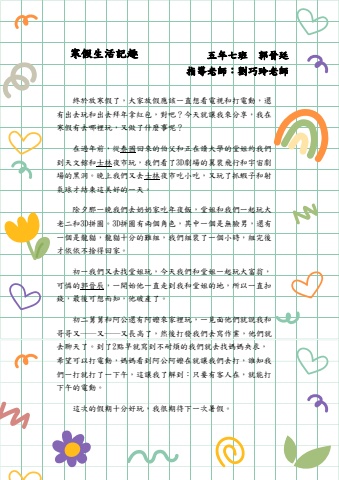 寒假生活記趣
五年七班 郭晉廷
指導老師：劉巧玲老師
終於放寒假了，大家放假應該一直想看電視和打電動，還
有出去玩和出去拜年拿紅包，對吧？今天就讓我來分享，我在
寒假有去哪裡玩，又做了什麼事呢？
在過年前，從泰國回來的伯父和正在讀大學的堂姐約我們
到天文館和士林夜市玩，我們看了3D劇場的翼裝飛行和宇宙劇
場的黑洞。晚上我們又去士林夜市吃小吃，又玩了抓蝦子和射
氣球才結束這美好的一天。
除夕那一晚我們去奶奶家吃年夜飯，堂姐和我們一起玩大
老二和3D拼圖。3D拼圖有兩個角色，其中一個是無臉男，還有
一個是龍貓，龍貓十分的難組，我們組裝了一個小時，組完後
才依依不捨得回家。
初一我們又去找堂姐玩，今天我們和堂姐一起玩大富翁，
可憐的郭晉辰，一開始他一直走到我和堂姐的地，所以一直扣
錢，最後可想而知，他破產了。
初二舅舅和阿公還有阿嬤來家裡玩，一見面他們就說我和
哥哥又──又──又長高了，然後打發我們去寫作業，他們就
去聊天了。到了2點早就寫到不耐煩的我們就去找媽媽央求，
希望可以打電動，媽媽看到阿公阿嬤在就讓我們去打，誰知我
們一打就打了一下午，這讓我了解到：只要有客人在，就能打
下午的電動。
這次的假期十分好玩，我很期待下一次暑假。